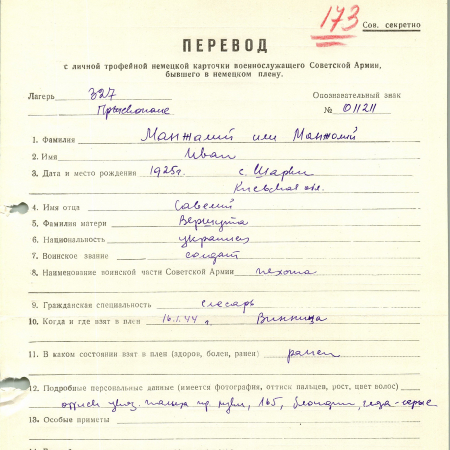 173 Сов. секретно
ПЕРЕВОД
с личной трофейной немецкой карточки военнослужащего Советской Армии,
бывшего в немецком плену.
Лагерь 327 Опознавательный знак
№ 01121
1. Фамилия Манжалий или Манжолий
2. Имя Иван
3. Дата и место рождения 1925г. с. Шарки
Киевская обл.
4. Имя отца Савелий
5. Фамилия матери Вершута
6. Национальность украинец
7. Воинское звание солдат
8. Наименование воинской части Советской Армии пехота
9. Гражданская специальность слесарь
10. Когда и где взят в плен 16.1.44 г. Винница
11. В каком состоянии взят в плен (здоров, болен, ранен) ранен
12. Подробные персональные данные (имеется фотография, оттиск пальцев, рост, цвет волос)
оттиск указ. пальца пр. руки, 165, блондин, глаза-серые
13. Особые приметы